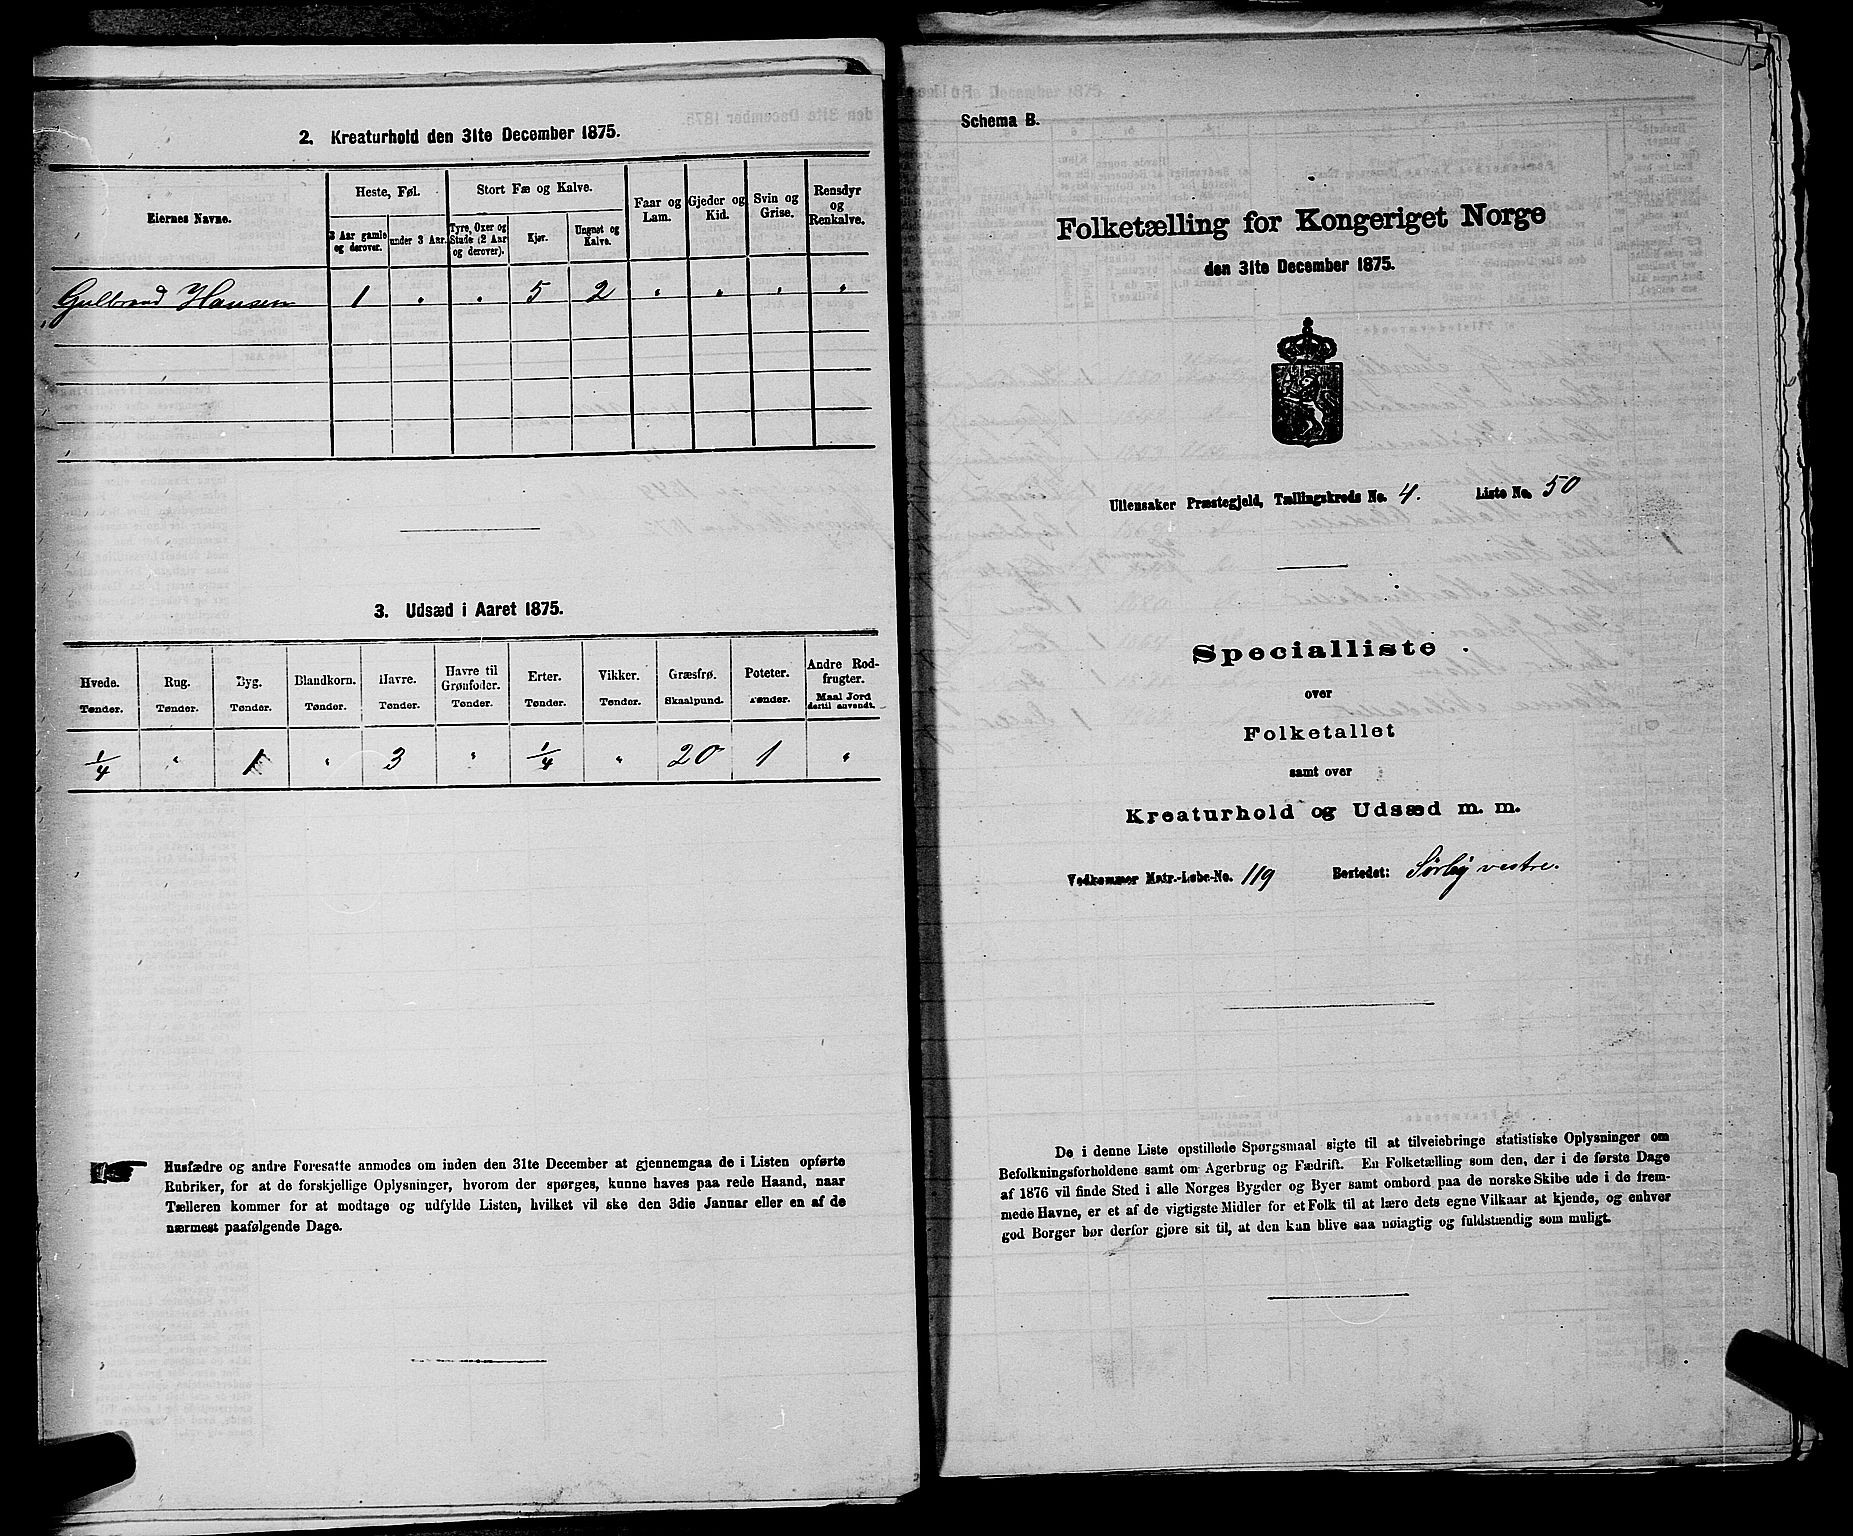 2. Kreaturhold den 31te December 1875.
Eiernes Navne.
Heste, Føl.
Stort Fæ og Kalve.
Faar og Lam.
Gjeder og Kid.
Svin og Grise.
Rensdyr og Renkalve.
3 Aar gamle og derover.
under 3 Aar.
Tyre, Oxer og Stude (2 Aar og derover).
Kjør.
Ungnøt og Kalve.
Gulbrand Hansen 1 " " 5 2 " " " "
3. Udsæd i Aaret 1875.
Hvede. Rug. Byg. Blandkorn. Havre. Havre til Grønfoder. Erter. Vikker. Græsfrø. Poteter. Andre Rodfrugter.
Tønder. Tønder. Tønder. Tønder. Tønder. Tønder. Tønder. Tønder. Skaalpund. Tønder. Maal Jord dertil anvendt.
1/4 " 1 " 3 " 1/4 " 20 1 "
Husfædre og andre Foresatte anmodes om inden den 31te December at gjennemgaa de i Listen opførte
Rubriker, for at de forskjellige Oplysninger, hvorom der spørges, kunne haves paa rede Haand, naar
Tælleren kommer for at modtage og udfylde Listen, hvilket vil ske den 3die Januar eller en af de
nærmest paafølgende Dage.
Schema B.
Folketælling for Kongeriget Norge
den 31te December 1875.
Ullensaker Præstegjeld, Tællingskreds No. 4. Liste No. 50
Specialliste
over
Folketallet
samt over
Kreaturhold og Udsæd m. m.
Vedkommer Matr.-Løbe-No. 119 Bostedet: Sørby vestre.
De i denne Liste opstillede Spørgsmaal sigte til at tilveiebringe statistiske Oplysninger om
Befolkningsforholdene samt om Agerbrug og Fædrift. En Folketælling som den, der i de første Dage
af 1876 vil finde Sted i alle Norges Bygder og Byer samt ombord paa de norske Skibe ude i de frem-
mede Havne, er et af de vigtigste Midler for et Folk til at lære dets egne Vilkaar at kjende, og enhver
god Borger bør derfor gjøre sit til, at den kan blive saa nøiagtig og fuldstændig som muligt.